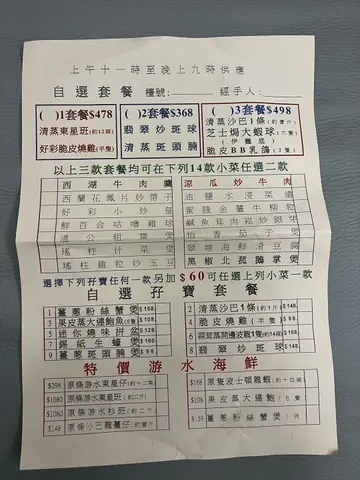 上午十一時至晚上九時供應
自選套餐 檯號:______ 經手人:______
( )1套餐$478
清蒸東星班(約12兩)
好彩脆皮燒雞(半隻)
( )2套餐$368
翡翠炒斑球
清蒸斑頭腩
( )3套餐$498
清蒸沙巴1條(約壹斤)
芝士焗大蝦球(六隻)
(伊麵底)
脆皮BB乳鴿(2隻)
以上三款套餐均可在下列14款小菜任選二款
西湖牛肉羹
涼瓜炒牛肉
西蘭花鳳片炒帶子
油鹽水浸菜遠
好彩小炒皇
蜜餞金薯牛柳粒
鮮百合咕嚕雞球
鹹魚茸肉崧炒銀球
瑤柱什菜煲
翠塘海鮮滑豆腐
瑤柱雞粒炒玉豆
黑椒北菇鵝掌煲
選擇下列孖寶任何一款另加$60可任選上列小菜一款
自選孖寶套餐
1 薑蔥粉絲蟹煲 $158.
2 清蒸沙巴1條(約1斤) $148.
3 果皮蒸大連鮑魚
4 脆皮燒雞(半隻)
5 迷你燒味拼盆 $128.
6 蒜茸蒸開邊龍1隻(約14兩) $168.
7 錫紙生蠔煲
8 翡翠炒斑球 $148.
9 薑蔥斑頭腩煲
特價游水海鮮
$298 原條游水東星仔(約十二兩)
$168 原隻波士頓龍蝦(約十四兩)
$1080 原條游水東星班(約二斤)
$108 果皮蒸大連鮑(6隻)
$1080 原條游水杉班(約二斤)
$158 薑蔥粉絲蟹煲
$148 原條沙巴龍躉仔(約二斤)